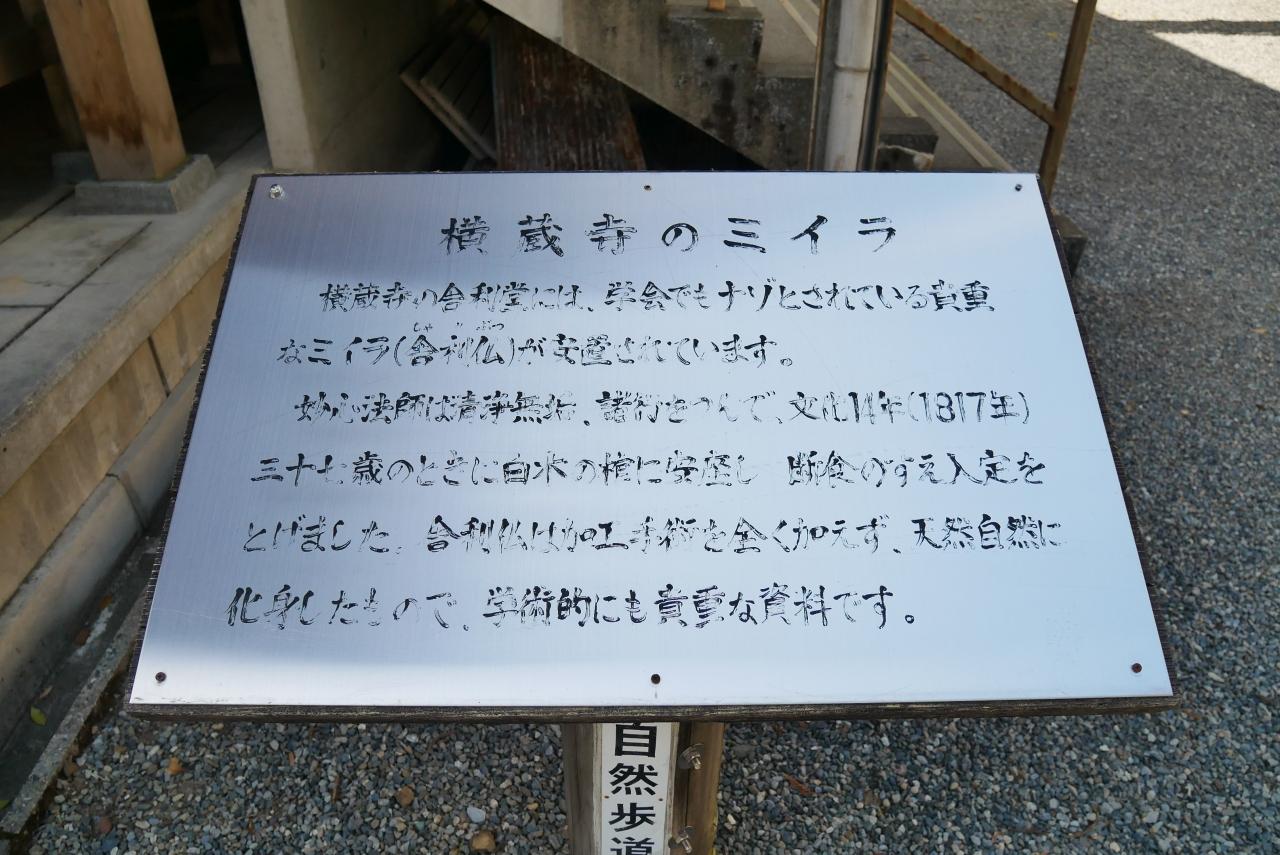 横蔵寺のミイラ
横蔵寺の舎利堂には、学会でもナゾとされている貴重
なミイラ(舎利仏)が安置されています。
妙心法師は清浄無垢、諸行をつんで、文化14年(1817年)
三十七歳のときに白木の棺に安座し 断食のすえ入定を
とげました。舎利仏は加工手術を全く加えず、天然自然に
化身したもので、学術的にも貴重な資料です。
自然歩道